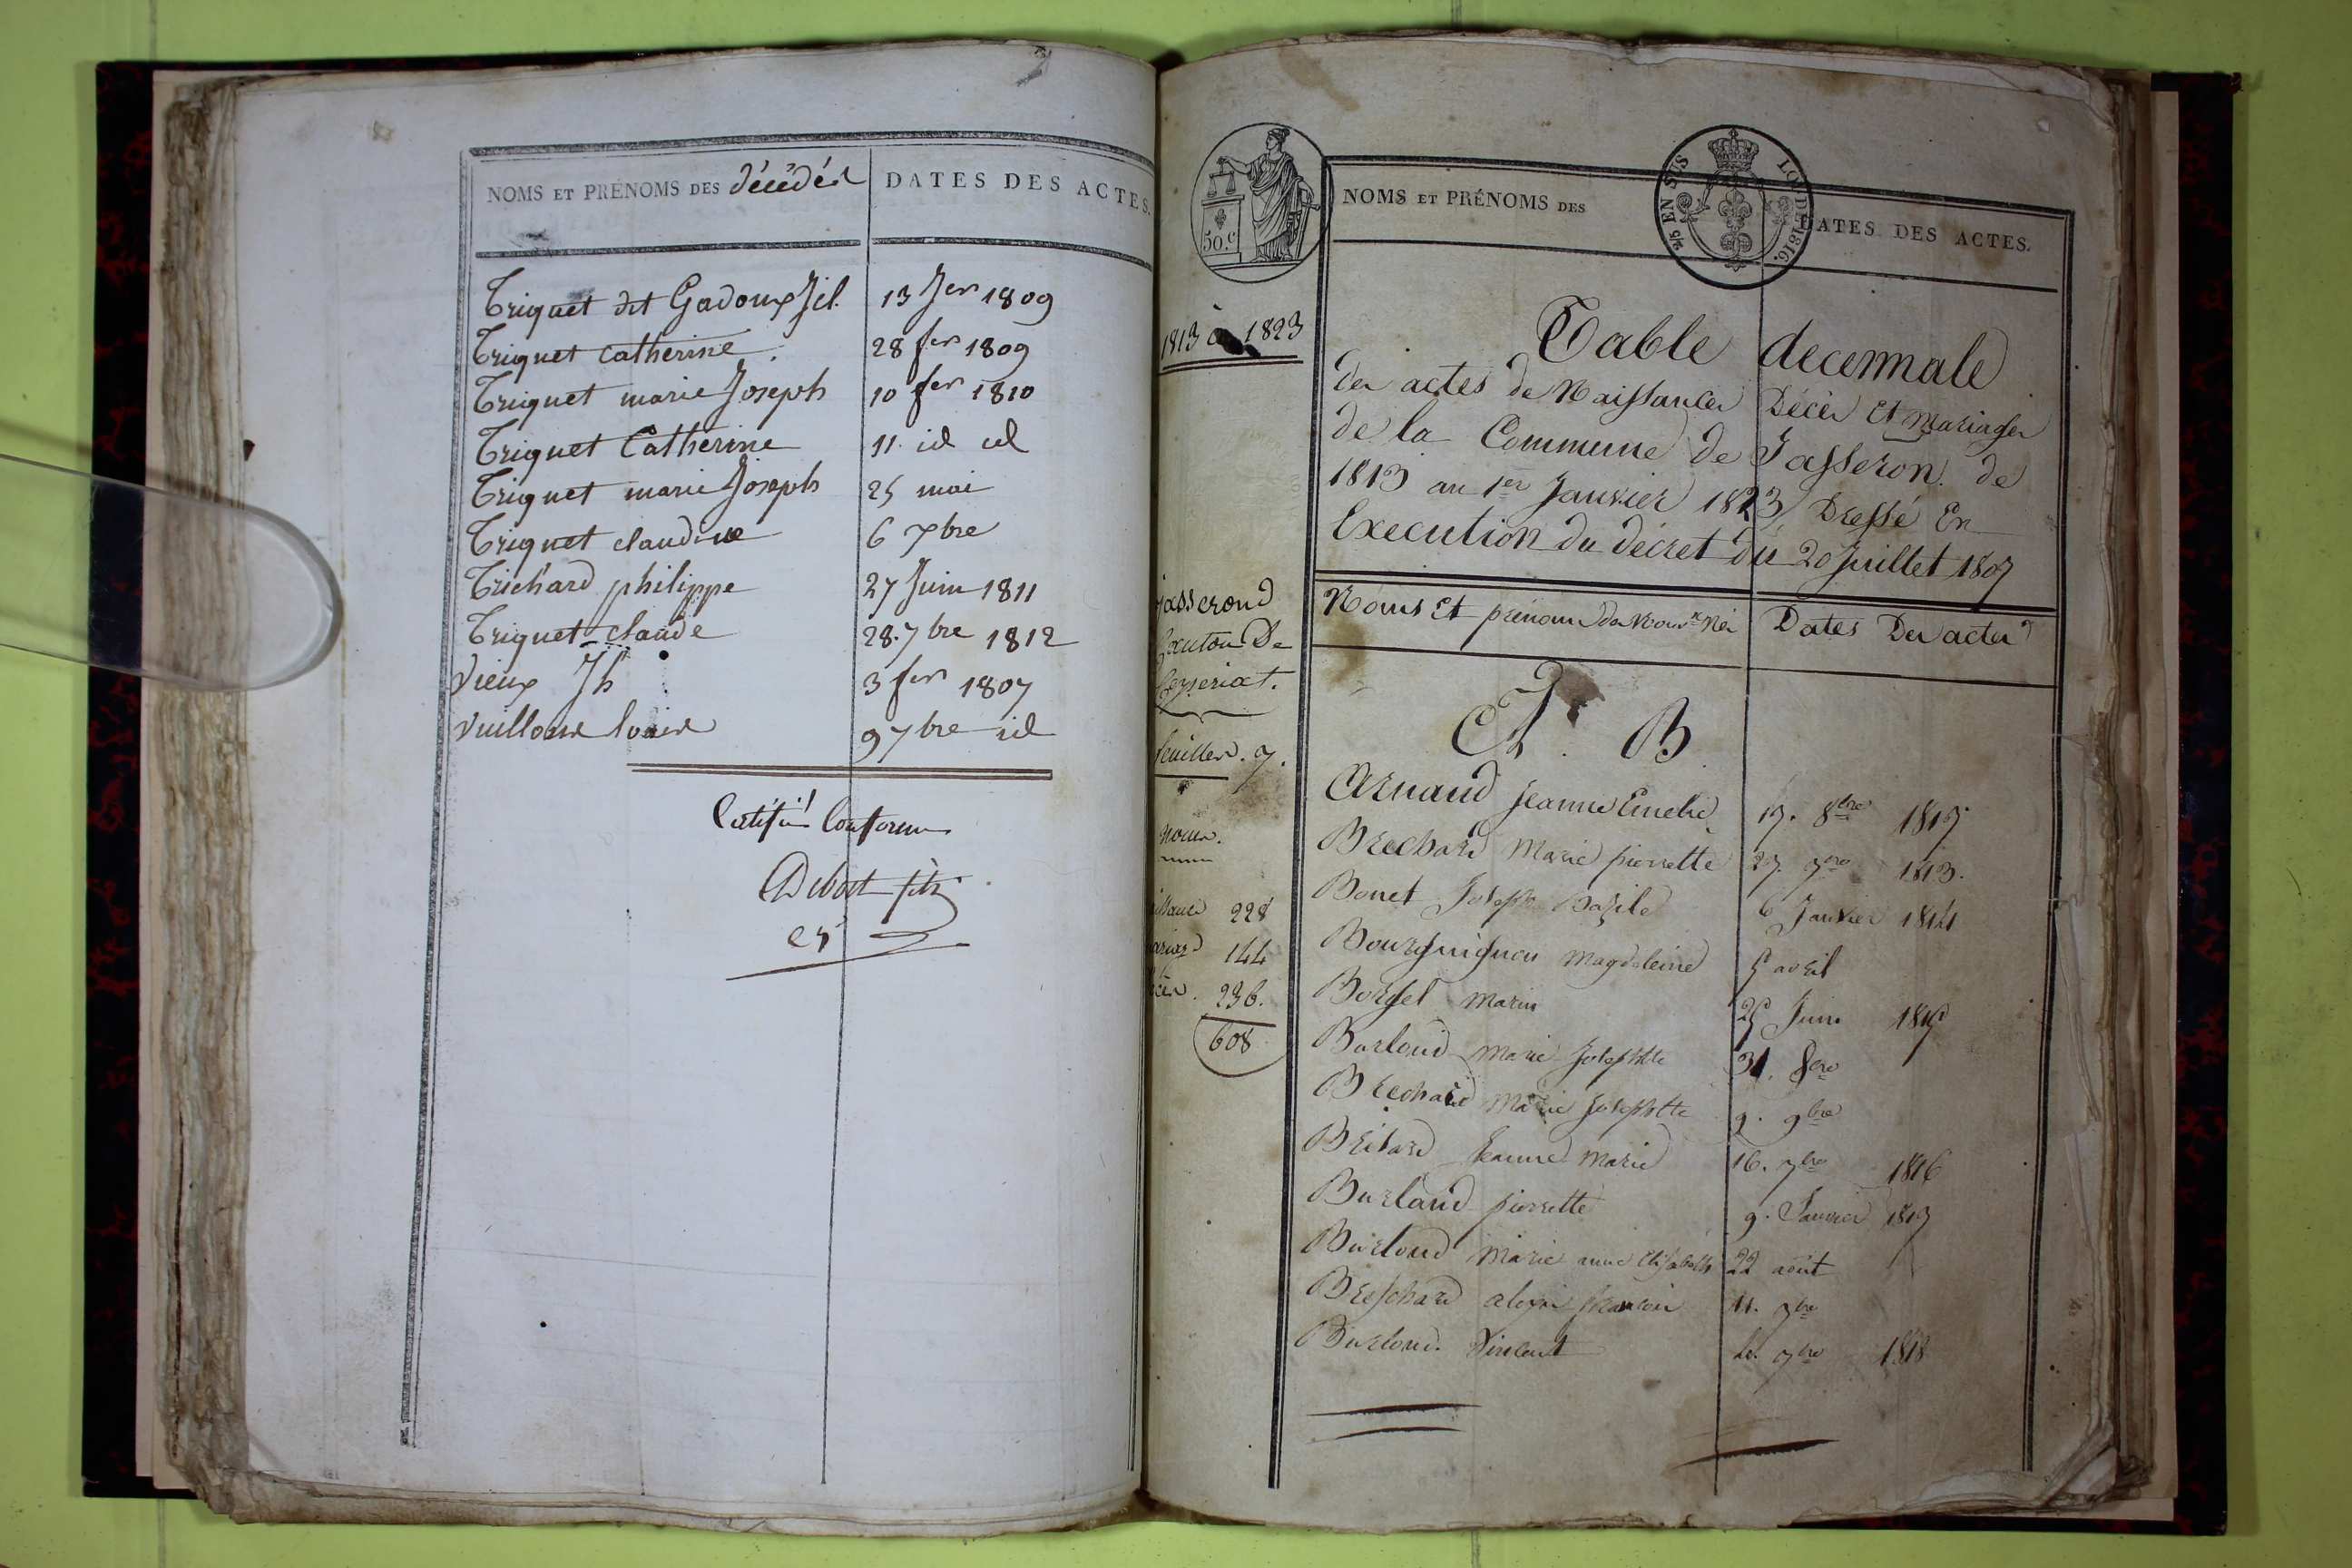 NOMS ET PRÉNOMS DES décédés DATES DES ACTES.
Triquet dit Gadoux Jh. 13 Jer 1809
Triquet catherine. 28 fer 1809
Triquet marie Joseph 10 fer 1810
Triquet Catherine 11 id id
Triquet marie Joseph 25 mai
Triquet claudine 6 7bre
Trichard philippe 27 Juin 1811
Triquet claude 28. 7bre 1812
Vieux Jh 3 fer 1807
9 7bre id
Certifié Conforme
Debost fils
1813 à 1823
jasserond
Ceyseriat.
feuilles. 7.
228
144
236.
608
50.C
45 EN SUS LOI DE 1816.
NOMS ET PRÉNOMS DES DATES DES ACTES.
Table decennale
des actes de Naissances Décès Et mariages
de la Commune de Jasseron. de
1813 au 1er Janvier 1823, Dressé En
Execution du décret du 20 juillet 1807
Noms Et prénoms des Nouvx Nés Dates Des actes
A. B
Arnaud jeanne Emelie 17. 8bre 1817
Brechard Marie pierrette 27. 7bre 1813.
Bonet Joseph Bazile 6 Janvier 1814
Bourguignon Magdeleine 5 avril
Borget Marie 25 Juin 1815
Burloud Marie Josephte 31.
Brechard Marie Josephte 9. 9bre
Jeanne Marie 16. 7bre 1816
Burloud pierrette 9. Janvier 1817
Burloud Marie anne Elisabeth 22 août
Breschard alexis francois 11. 7bre
Burloud. Vincent 7bre 1818